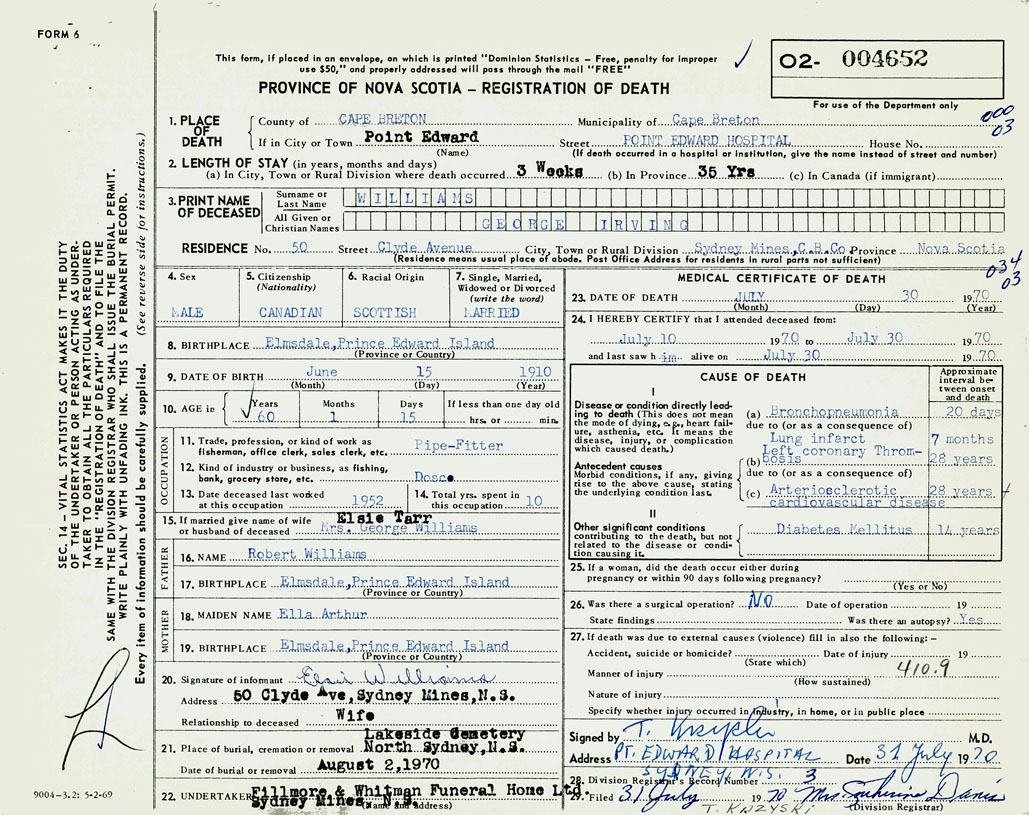 FORM 6
This form, if placed in an envelope, on which is printed "Dominion Statistics – Free, penalty for improper
use $50," and properly addressed will pass through the mail "FREE"
02- 004652
For use of the Department only
PROVINCE OF NOVA SCOTIA – REGISTRATION OF DEATH
000
03
1. PLACE OF DEATH County of CAPE BRETON Municipality of Cape Breton
If in City or Town Point Edward Street POINT EDWARD HOSPITAL House No.
(Name) (If death occurred in a hospital or institution, give the name instead of street and number)
2. LENGTH OF STAY (in years, months and days)
(a) In City, Town or Rural Division where death occurred 3 Weeks (b) In Province 35 Yrs (c) In Canada (if immigrant)
3. PRINT NAME OF DECEASED
Surname or Last Name WILLIAMS
All Given or Christian Names GEORGE IRVING
RESIDENCE No. 50 Street Clyde Avenue City, Town or Rural Division Sydney Mines,C.B.Co Province Nova Scotia
(Residence means usual place of abode. Post Office Address for residents in rural parts not sufficient)
034
03
4. Sex
MALE
5. Citizenship
(Nationality)
CANADIAN
6. Racial Origin
SCOTTISH
7. Single, Married,
Widowed or Divorced
(write the word)
MARRIED
8. BIRTHPLACE Elmsdale,Prince Edward Island
(Province or Country)
9. DATE OF BIRTH June 15 1910
(Month) (Day) (Year)
10. AGE in Years Months Days If less than one day old
60 1 15 hrs. or min.
OCCUPATION
11. Trade, profession, or kind of work as
fisherman, office clerk, sales clerk, etc. Pipe-Fitter
12. Kind of industry or business, as fishing,
bank, grocery store, etc. Dosco
13. Date deceased last worked
at this occupation 1952
14. Total yrs. spent in
this occupation 10
15. If married give name of wife Elsie Tarr
or husband of deceased Mrs. George Williams
FATHER
16. NAME Robert Williams
17. BIRTHPLACE Elmsdale,Prince Edward Island
(Province or Country)
MOTHER
18. MAIDEN NAME Ella Arthur
19. BIRTHPLACE Elmsdale,Prince Edward Island
(Province or Country)
20. Signature of informant Elsie Williams
Address 50 Clyde Ave,Sydney Mines,N.S.
Relationship to deceased Wife
21. Place of burial, cremation or removal Lakeside Cemetery
North Sydney,N.S.
Date of burial or removal August 2,1970
22. UNDERTAKER Fillmore & Whitman Funeral Home Ltd.
Sydney Mines, N.S.
(Name and address)
MEDICAL CERTIFICATE OF DEATH
23. DATE OF DEATH JULY 30 1970
(Month) (Day) (Year)
24. I HEREBY CERTIFY that I attended deceased from:
July 10 1970 to July 30 1970
and last saw him alive on July 30 1970
CAUSE OF DEATH
Approximate
interval be-
tween onset
and death
I
Disease or condition directly lead-
ing to death (This does not mean
the mode of dying, e.g., heart fail-
ure, asthenia, etc. It means the
disease, injury, or complication
which caused death.)
(a) Bronchopneumonia 20 days
due to (or as a consequence of)
Lung infarct 7 months
Antecedent causes
Morbid conditions, if any, giving
rise to the above cause, stating
the underlying condition last.
Left coronary Throm-
(b) bosis 28 years
due to (or as a consequence of)
(c) Arteriosclerotic 28 years +
cardiovascular disease
II
Other significant conditions
contributing to the death, but not
related to the disease or condi-
tion causing it.
Diabetes Mellitus 14 years
25. If a woman, did the death occur either during
pregnancy or within 90 days following pregnancy?
(Yes or No)
26. Was there a surgical operation? No Date of operation 19
State findings Was there an autopsy? Yes
27. If death was due to external causes (violence) fill in also the following: –
Accident, suicide or homicide? Date of injury 19
(State which)
Manner of injury 410.9
(How sustained)
Nature of injury
Specify whether injury occurred in industry, in home, or in public place
Signed by T. Knzyski M.D.
Address PT. EDWARD HOSPITAL Date 31 July 1970
SYDNEY, N.S.
28. Division Registrar's Record Number 3
29. Filed 31 July 1970 Mrs. Davis
(Division Registrar)
T. KNZYSKI
SEC. 14 – VITAL STATISTICS ACT MAKES IT THE DUTY
OF THE UNDERTAKER OR PERSON ACTING AS UNDER-
TAKER TO OBTAIN ALL THE PARTICULARS REQUIRED
IN THE "REGISTRATION OF DEATH" AND TO FILE THE
SAME WITH THE DIVISION REGISTRAR WHO SHALL ISSUE THE BURIAL PERMIT.
WRITE PLAINLY WITH UNFADING INK. THIS IS A PERMANENT RECORD.
Every item of information should be carefully supplied. (See reverse side for instructions.)
9004-3.2: 5-2-69